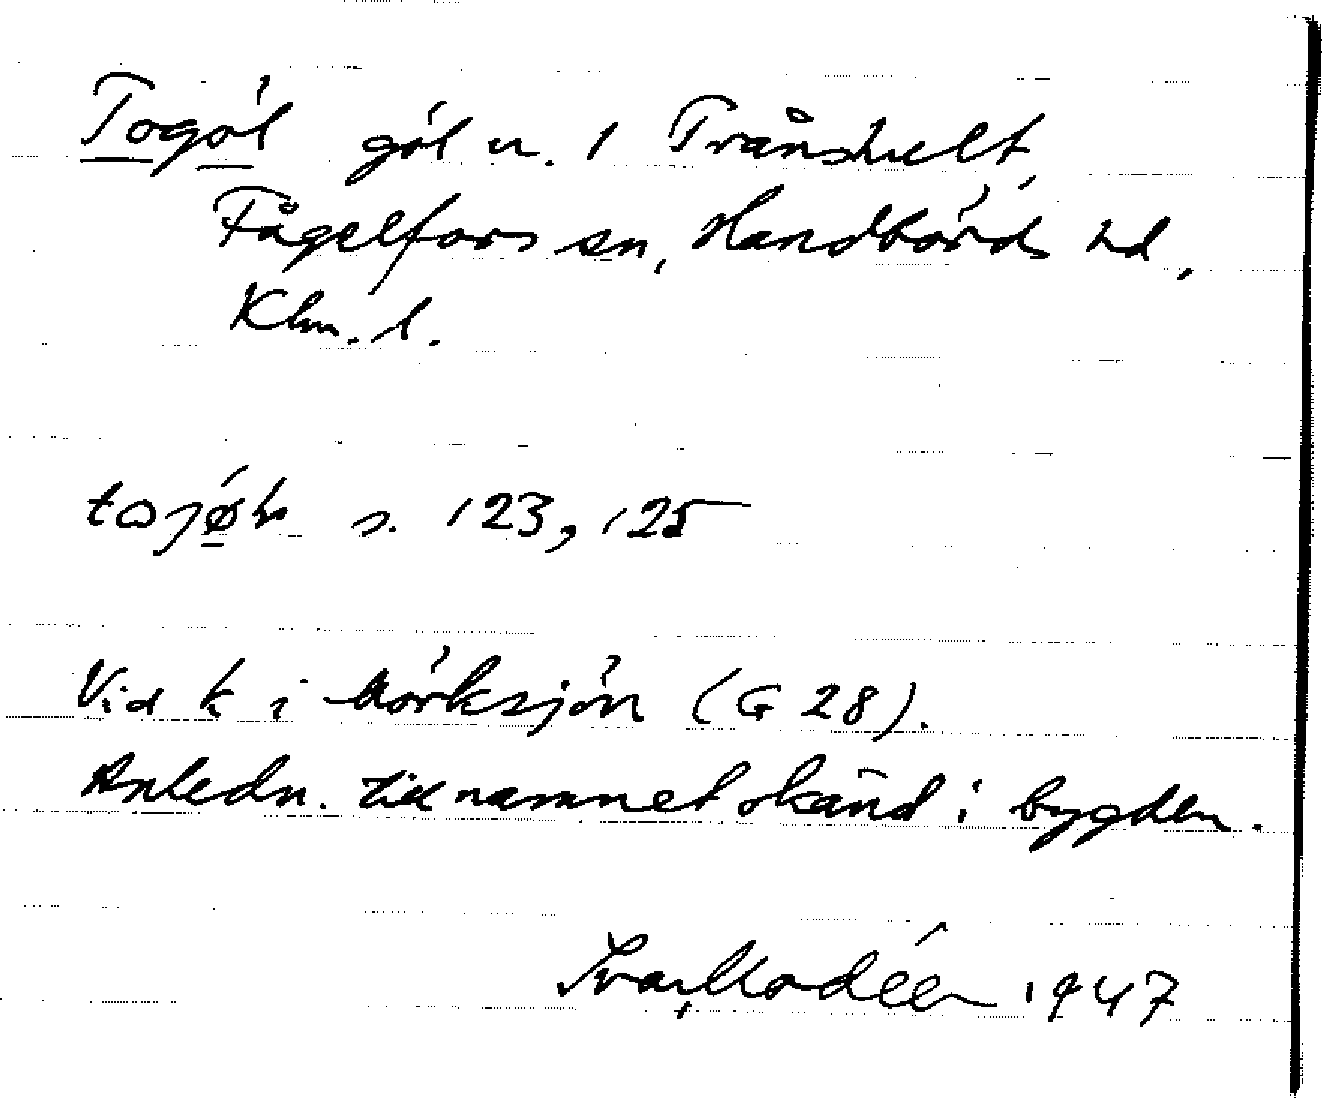 Togöl göl u. 1 Trånshult,
Fågelfors sn, Handbörds hd,
Klm. l.
s. 123, 125
Vid k i Mörksjön (G 28).
Anledn. till namnet okänd i bygden.
Ivar Modéer 1947